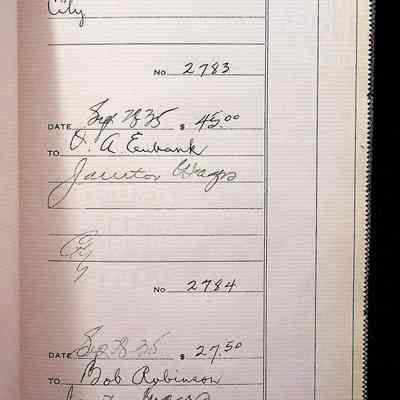 City
No 2783
DATE Sep 28 35 $ 45.00
TO O. A. Eubank
Janitor Wages
No 2784
DATE Sep 28 35 $ 27.50
TO Bob Robinson
Wages